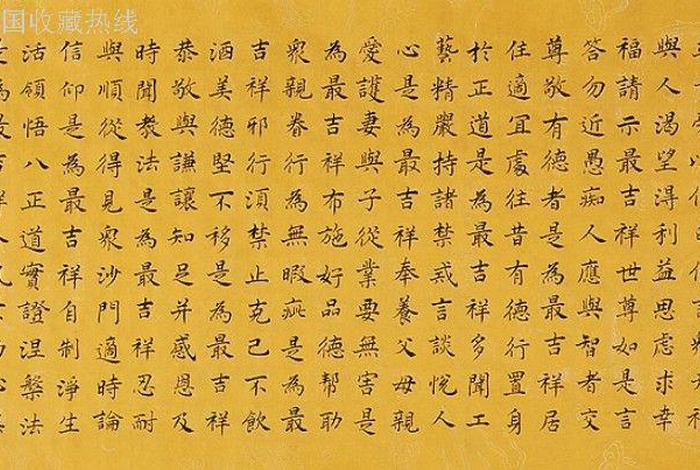 国收藏热线
與人渴望得利益思慮求幸
福請示最吉祥世尊如是言
答勿近愚痴人應與智者交
尊敬有德者是為最吉祥居
住適宜處往昔有德行置身
於正道是為最吉祥多聞工
藝精嚴持諸禁戒言談悅人
心是為最吉祥奉養父母親
愛護妻與子從業要無害是
為最吉祥布施好品德幫助
衆親眷行為無瑕疵是為最
吉祥邪行須禁止克己不飲
酒美德堅不移是為最吉祥
恭敬與謙讓知足并感恩及
時聞教法是為最吉祥忍耐
與順從得見衆沙門適時論
信仰是為最吉祥自制淨生
活領悟八正道實證涅槃法